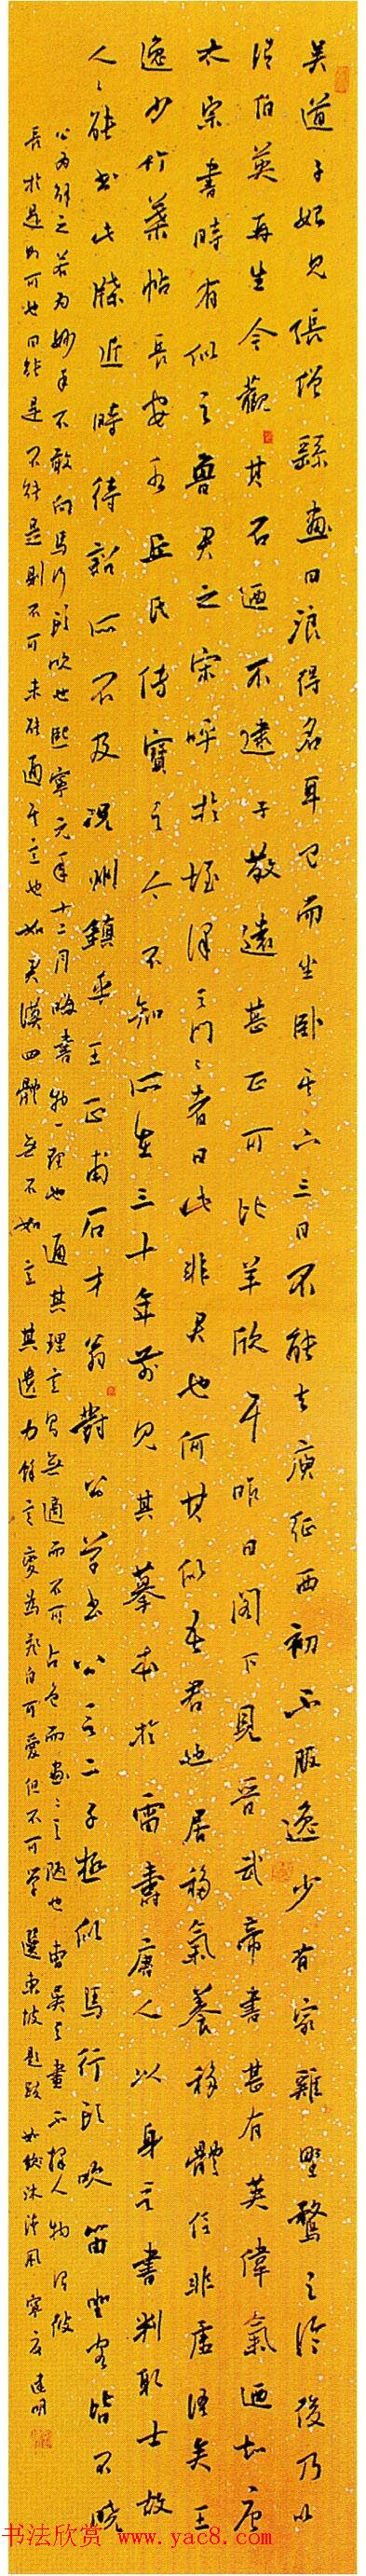 吴道子始见张僧繇画曰浪得名耳已而坐卧其下三日不能去庾征西初不服逸少有家鸡野鹜之论后乃以
谓伯英再生今观其石乃不逮子敬远甚正可比羊欣耳昨日阁下见晋武帝书甚有英伟气乃知唐
太宗书时有似之鲁君之宋呼于垤泽之门门者曰此非君也何其似吾君也居移气养移体信非虚语矣王
逸少竹叶帖长安水丘氏传宝之今不知所在三十年前见其摹本于雷寿唐人以身言书判取士故
人人能书此牒近时待诏所不及况州镇乎王正甫石才翁对公草书公言二子极似马行头吹笛坐客皆不晓
公为解之若为妙手不敢向马行头吹也熙宁元年十二月晦书物一理也通其理则无适而不可占色而画之陋也书吴之画不择人物
长于是则可也曰能是不能是则不可未能通其意也如君谟四体无不如意其遗力余意变为飞白可爱但不可学选东坡题跋如饮沐清风宁夏建明
书法欣赏 www.yac8.com